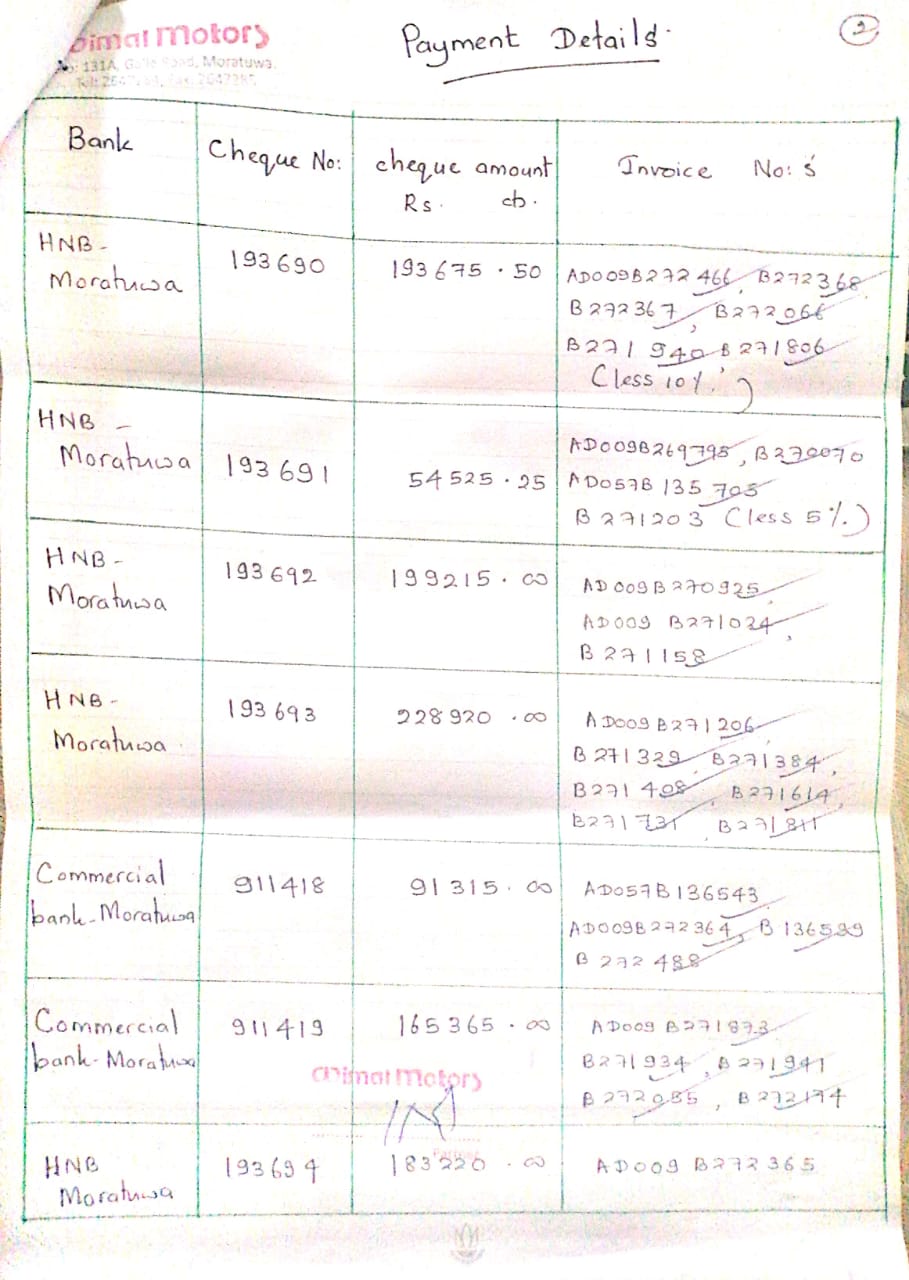 Dimal Motors
No: 131A, Galle Road, Moratuwa.
Payment Details.
2
Bank
Cheque No:
cheque amount
Rs. cts.
Invoice No:s
HNB -
Moratuwa
193690
193675.50
AD009B272466, B272368
B272367, B272066
B271940 B271806
(less 10%)
HNB -
Moratuwa
193691
54525.25
AD009B269795, B270070
AD057B135705
B271203 (less 5%)
HNB -
Moratuwa
193692
199215.00
AD009B270925,
AD009 B271024,
B271158
HNB -
Moratuwa
193693
228920.00
AD009 B271206,
B271329, B271384,
B271408, B271614,
B271731, B271811
Commercial
bank-Moratuwa
911418
91315.00
AD057B136543
AD009B272364, B136539
B272488
Commercial
bank-Moratuwa
911419
165365.00
AD009 B271873
B271934, B271941
B272085, B272174
Dimal Motors
Partner
HNB
Moratuwa
193694
183220.00
AD009 B272365